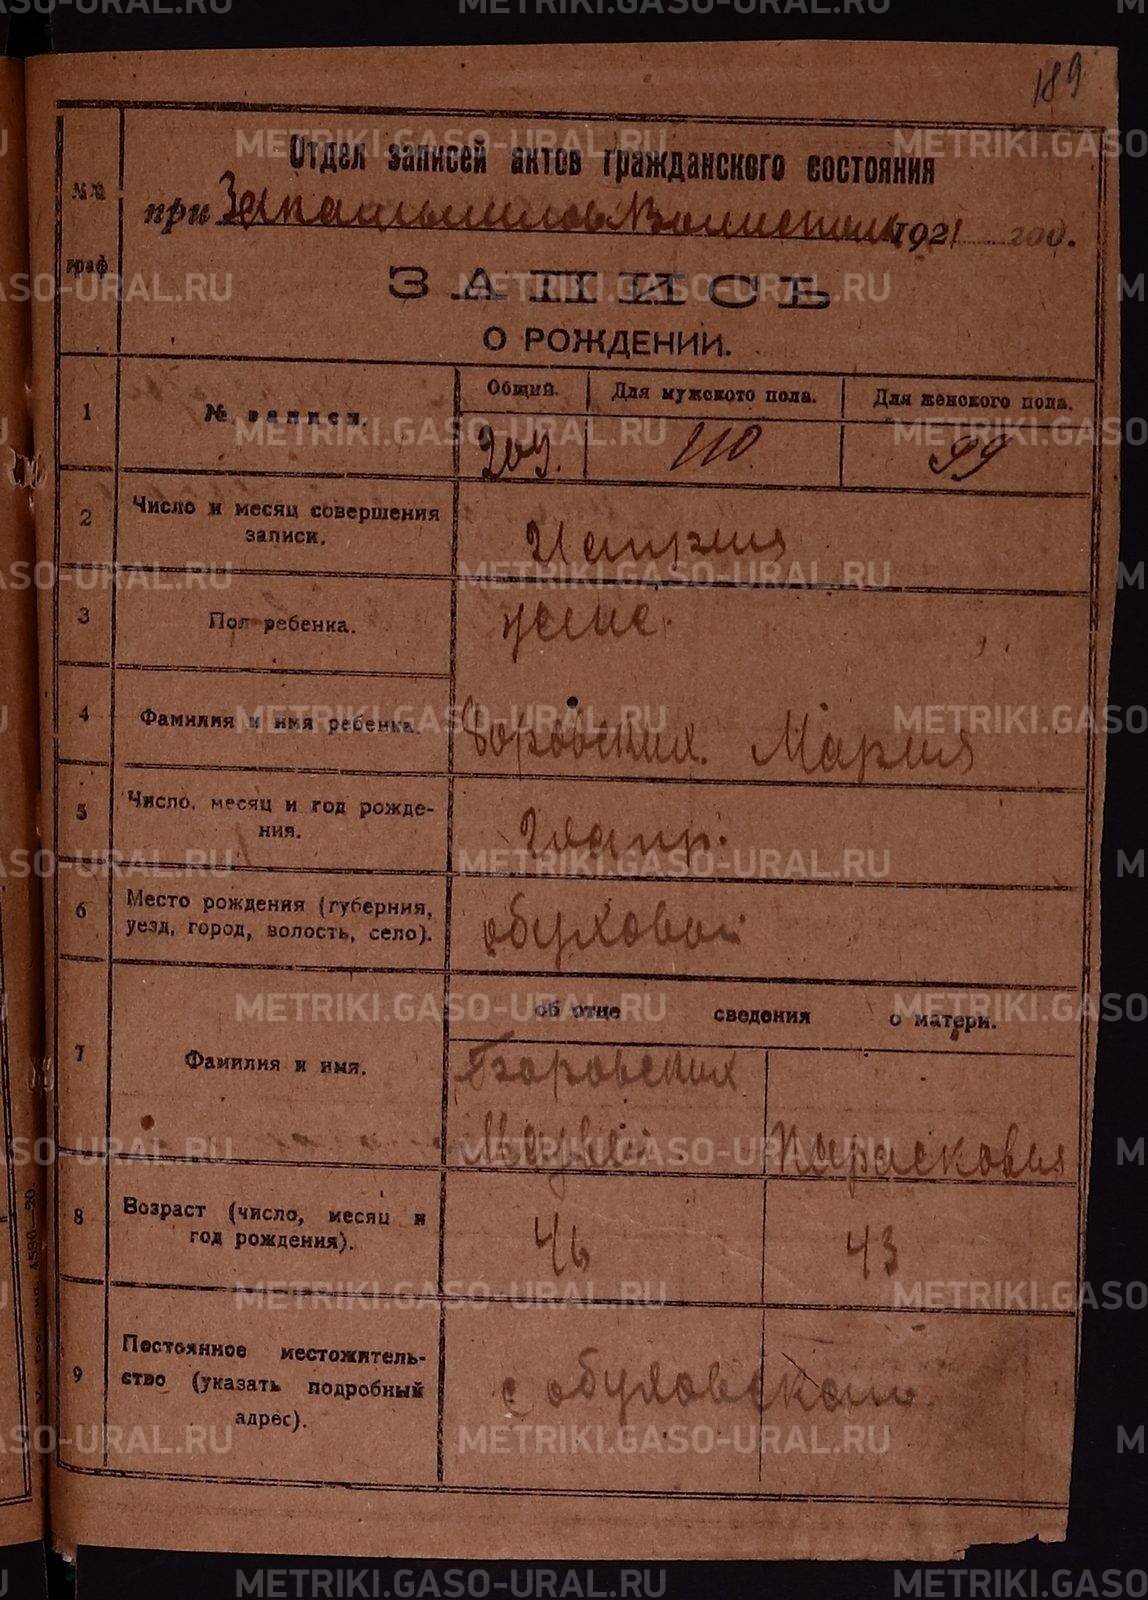 189
Отдел записей актов гражданского состояния
при 1921 год.
№№ граф
ЗАПИСЬ
О РОЖДЕНИИ.
1 № записи. Общий. Для мужского пола. Для женского пола.
209. 110 99
2 Число и месяц совершения записи. 21 апреля
3 Пол ребенка. женс.
4 Фамилия и имя ребенка. Боровских. Мария
5 Число, месяц и год рождения. апр.
6 Место рождения (губерния, уезд, город, волость, село). обуховой
об отце сведения о матери.
7 Фамилия и имя. Боровских
Парасковия
8 Возраст (число, месяц и год рождения). 46 43
9 Постоянное местожительство (указать подробный адрес). с обуховском
METRIKI.GASO-URAL.RU